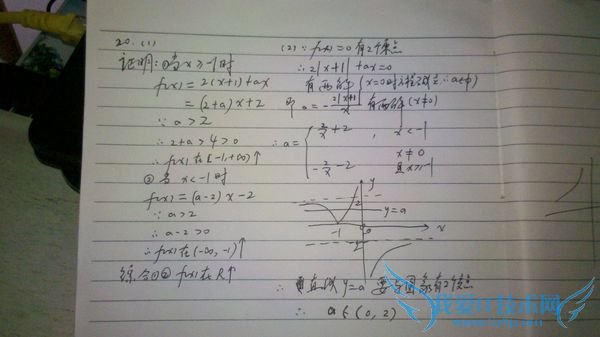 20. (1)
证明: ①当x≥-1时
f(x) = 2(x+1)+ax
= (2+a)x+2
∵ a>2
∴ 2+a>4>0
∴ f(x)在[-1,+∞)↑
②当 x<-1时
f(x) = (a-2)x-2
∵ a>2
∴ a-2>0
∴ f(x)在(-∞,-1)↑
综合①② f(x)在R↑
(2) ∵ f(x)=0有2个零点
∴ 2|x+1|+ax=0
有两解
即 a = -2|x+1|/x 有两解(x≠0)
∴ a = { 2/x+2 , x<-1
-2/x-2 x≠0
且x≥-1
y
2
y=a
-1
0
x
-2
∴ 要与图象有2个交点
∴ a∈(0,2)